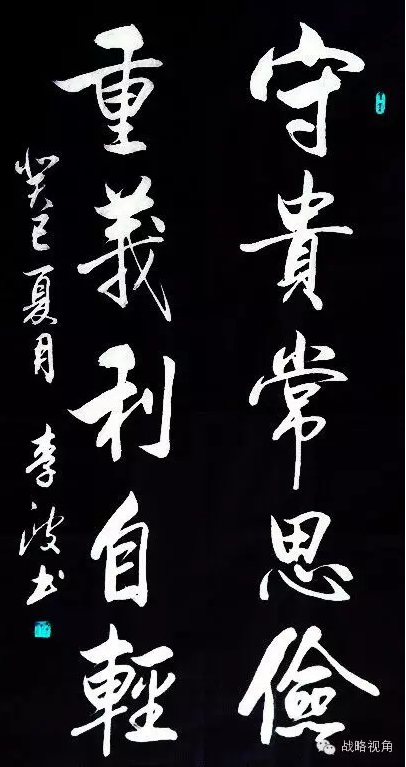 守貴常思儉
重義利自輕
癸巳夏月 李波书
战略视角